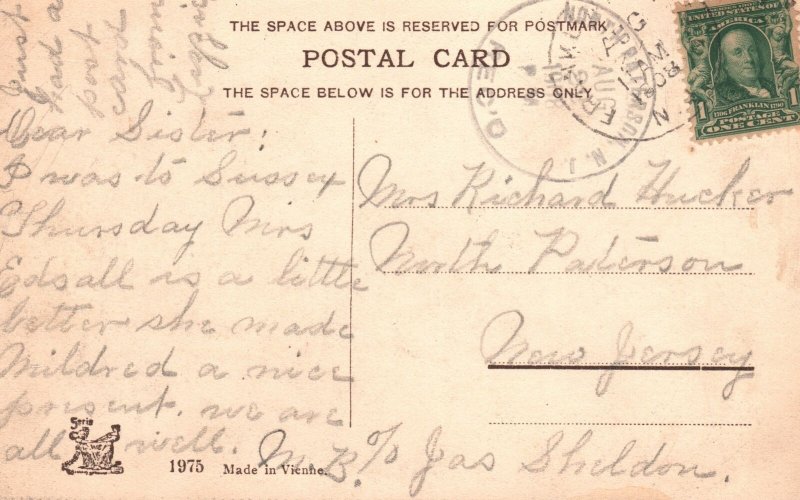 THE SPACE ABOVE IS RESERVED FOR POSTMARK
POSTAL CARD
THE SPACE BELOW IS FOR THE ADDRESS ONLY
UNITED STATES OF AMERICA
1706 FRANKLIN 1790
1 1
POSTAGE
ONE CENT
NORTH PATERSON, N. J.
REC'D.
AUG
1908
Just
had a
post
card
from
Dear Sister;
I was to Sussex
Thursday Mrs
Edsall is a little
better she made
Mildred a nice
present. we are
all well. M. B.
Mrs Richard Hucker
North Paterson
New Jersey
c/o Jas Sheldon.
Serie
1975 Made in Vienne.